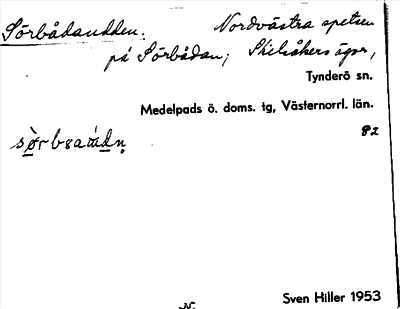 Sörbådaudden. Nordvästra spetsen
på Sörbådan; Skilsåkers ägor,
Tynderö sn.
Medelpads ö. doms. tg, Västernorrl. län.
82
Sven Hiller 1953
N.